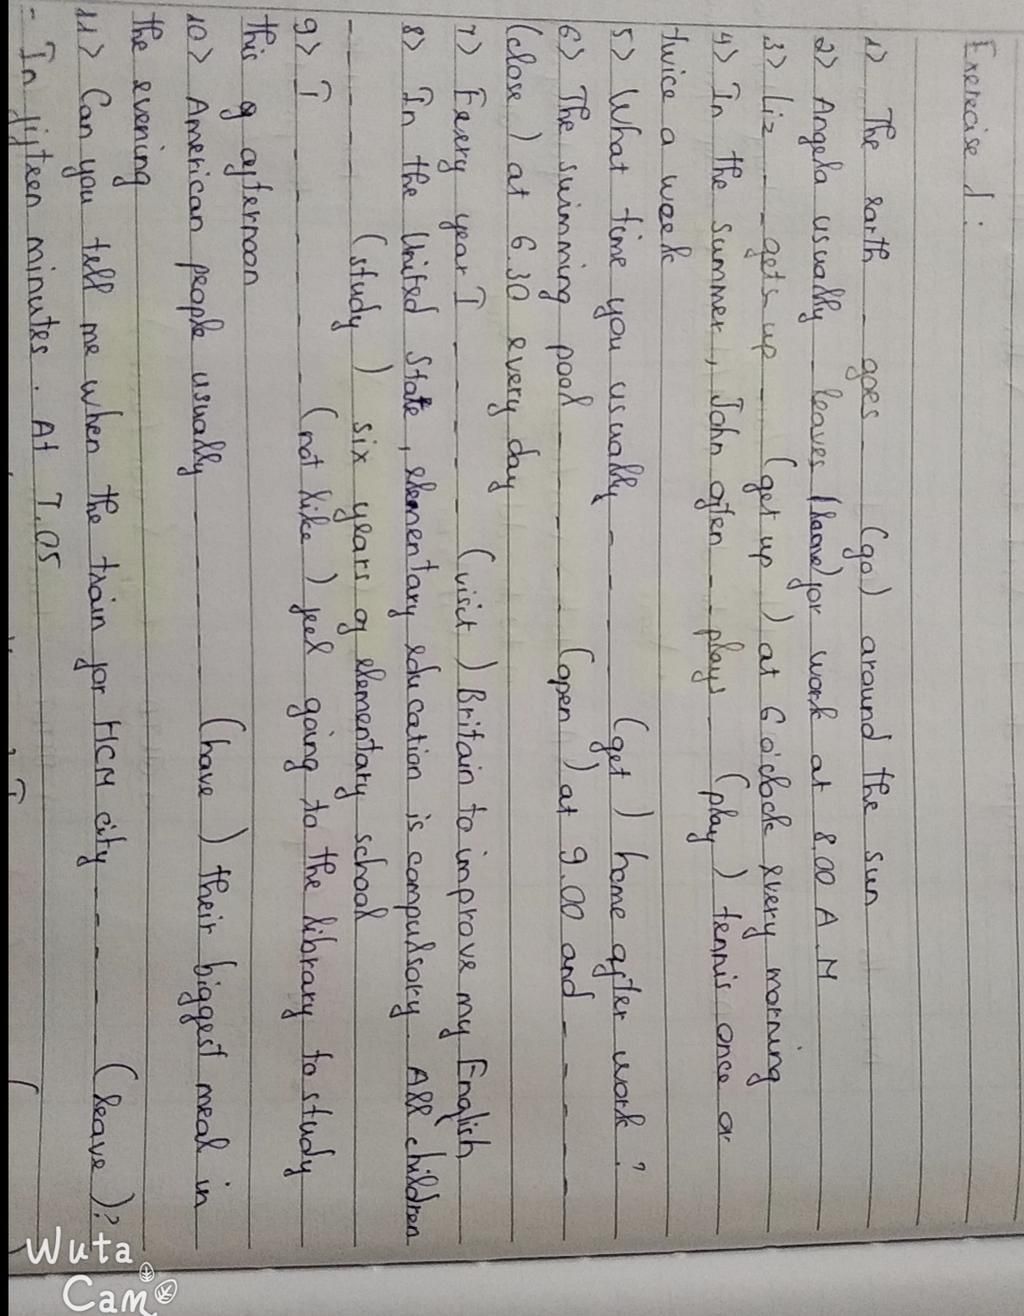 Exercise 1:
1> The earth _ goes _ (go) around the sun
2> Angela usually _ leaves (leave) for work at 8.00 A.M
3> Liz _ _ gets up _ (get up) at 6 o'clock every morning
4> In the summer, John often _ plays _ (play) tennis once or
twice a week
5> What time you usually _ _ _ _ (get) home after work?
6> The swimming pool _ _ _ _ (open) at 9.00 and _ _ _ _ _
(close) at 6.30 every day
7> Every year I _ _ _ _ _ (visit) Britain to improve my English
8> In the United State, elementary education is compulsory. All children
_ _ _ _ _ (study) six years of elementary school
9> I _ _ _ _ _ _ (not like) feel going to the library to study
this g afternoon
10> American people usually _ _ _ _ _ (have) their biggest meal in
the evening
11> Can you tell me when the train for HCM city _ _ _ _ _ (leave)?
- In fifteen minutes. At 7.05
Wuta
Cam